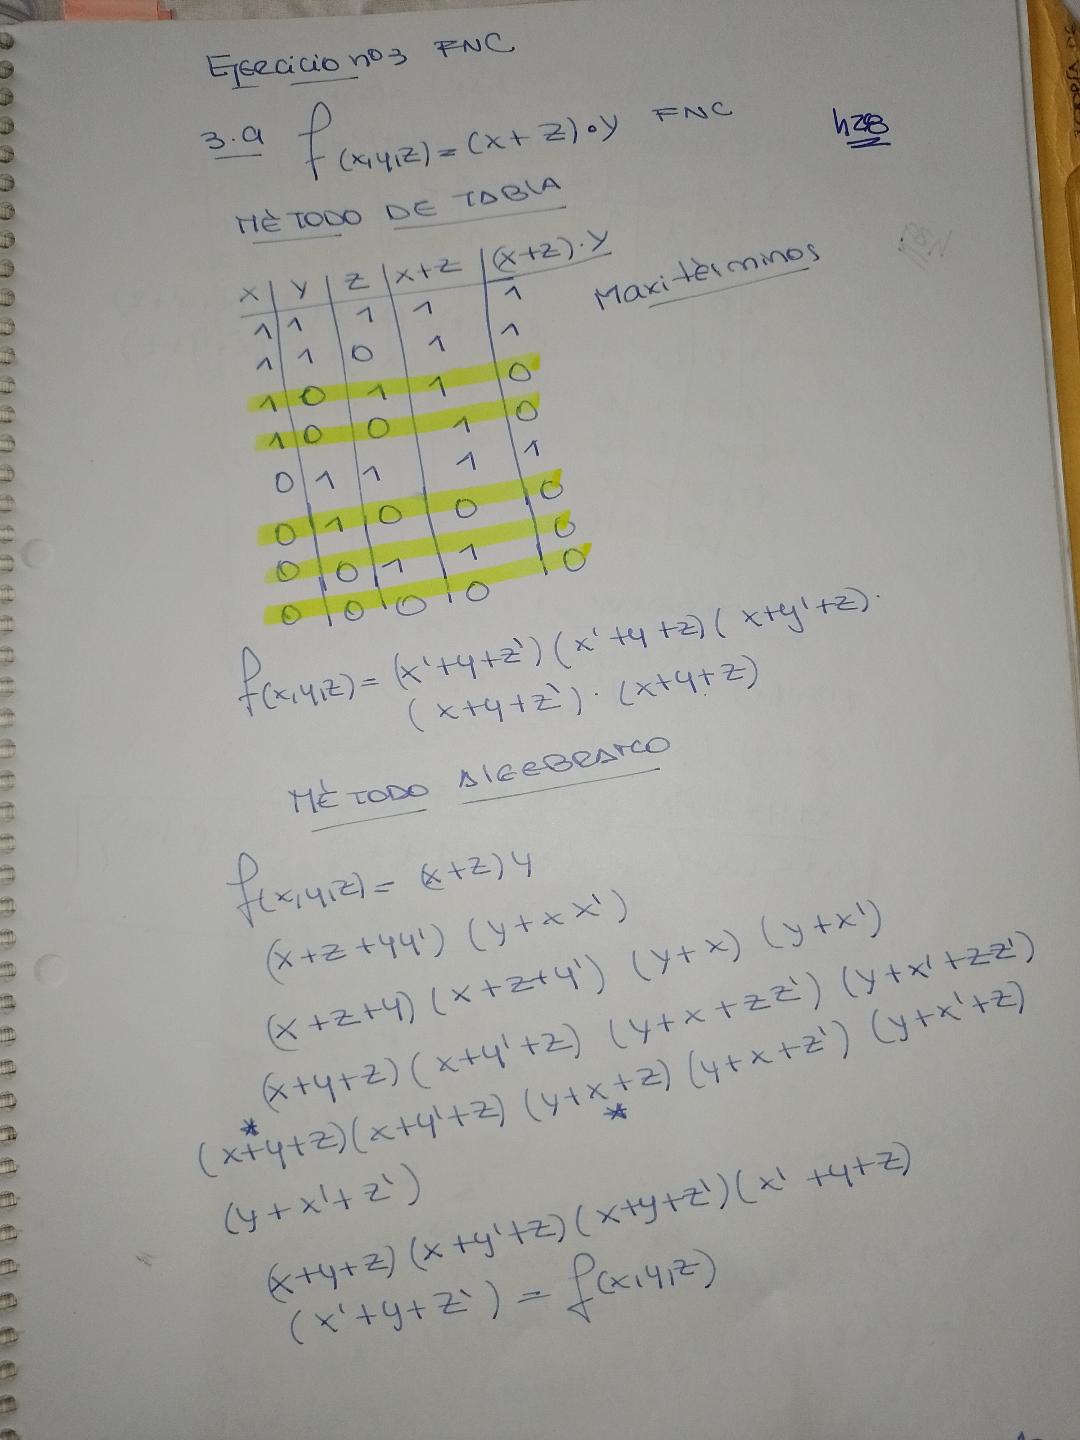 Ejercicio nº3 FNC
3.a f(x,y,z) = (x+z)•y FNC
MÈTODO DE TABLA
x | y | z | x+z | (x+z).y Maxitèrminos
1 1 1 1 1
1 1 0 1 1
1 0 1 1 0
1 0 0 1 0
0 1 1 1 1
0 1 0 0 0
0 0 1 1 0
0 0 0 0 0
f(x,y,z) = (x'+y+z')(x'+y+z)(x+y'+z).
(x+y+z').(x+y+z)
MÈTODO ALGEBRAICO
f(x,y,z) = (x+z)y
(x+z+yy') (y+xx')
(x+z+y)(x+z+y') (y+x) (y+x')
(x+y+z)(x+y'+z) (y+x+zz') (y+x'+zz')
(x+y+z)(x+y'+z) (y+x+z) (y+x+z') (y+x'+z)
(y+x'+z')
(x+y+z)(x+y'+z)(x+y+z')(x'+y+z)
(x'+y+z') = f(x,y,z)